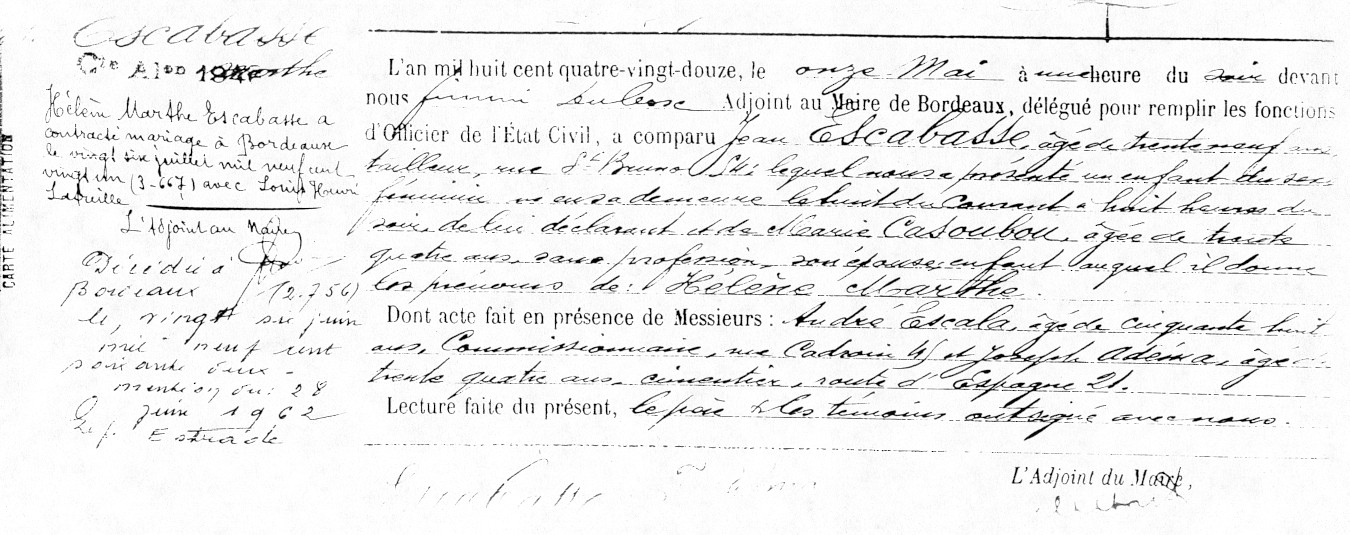 Escabasse
Cte Alon 18
Marthe
Hélèn Marthe Escabasse a
contracté mariage à Bordeaux
le vingt six juillet mil neuf cent
vingt un (3-667) avec Louis Henri
Lareille
L'Adjoint au Maire
Décédée à
Bordeaux (2.756)
le, vingt six juin
mil neuf cent
soixante deux -
mention du: 28
juin 1962
Estrade
CARTE ALIMENTATION
L'an mil huit cent quatre-vingt-douze, le onze Mai à une heure du soir devant
nous Adjoint au Maire de Bordeaux, délégué pour remplir les fonctions
d'Officier de l'État Civil, a comparu Jean Escabasse, âgé de trente neuf ans,
tailleur, rue St Bruno 54; lequel nous a présenté un enfant du sexe
féminin né en sa demeure le huit du courant à huit heures du
soir, de lui déclarant et de Marie Casoubou, âgée de trente
quatre ans, sans profession, son épouse; enfant auquel il donne
les prénoms de: Hélène Marthe.
Dont acte fait en présence de Messieurs: André Escala, âgé de cinquante huit
ans, Commissionnaire, rue Cadroin et Joseph Adéma, âgé de
trente quatre ans, cimentier, route d'Espagne 21.
Lecture faite du présent, le père & les témoins ont signé avec nous.
L'Adjoint du Maire,